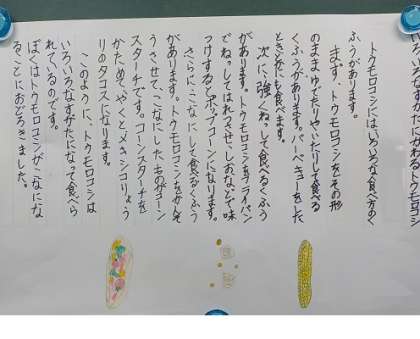 いろいろなすがたにかわるトウモロコシ
トウモロコシにはいろいろな食べ方のく
ふうがあります。
まず、トウモロコシをその形
のままゆでたりやいたりして食べる
くふうがあります。バーベキューをした
ときなどにも食べます。
次に、強くねっして食べるくふう
があります。トウモロコシをフライパン
でねっしてはれつさせ、しおなどで味
つけするとポップコーンになります。
さらに、こなにして食べるくふう
があります。トウモロコシをかんそ
うさせて、こなにしたものがコーン
スターチです。コーンスターチを
かためて、やくとメキシコりょう
りのタコスになります。
このように、トウモロコシは
いろいろなすがたになって食べら
れているのです。
ぼくはトウモロコシがこなにな
ることにおどろきました。